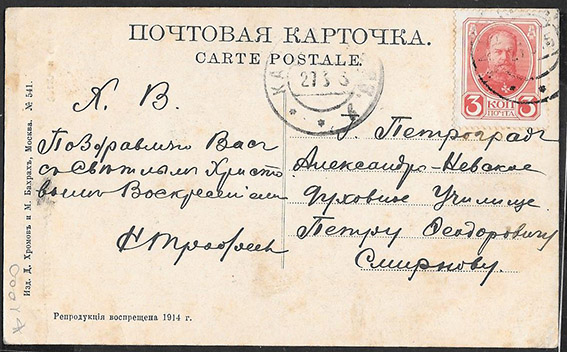 ПОЧТОВАЯ КАРТОЧКА.
CARTE POSTALE.
27 3
3 КОП 3
ПОЧТА
Х. В.
Поздравляю Вас
съ Свѣтлымъ Христо
вымъ Воскресенiем
г. Петроградъ
Александро Невское
Духовное Училище
Петру Ѳеодоровичу
Смирнову.
Изд. Д. Хромовъ и М. Бахрахъ, Москва. № 541.
Репродукція воспрещена 1914 г.